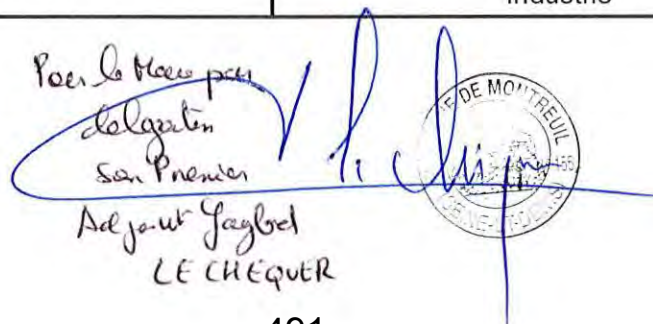 Industrie
Pour le Maire par
délégation
Son Premier
Adjoint Gaylord
LE CHEQUER
DE MONTREUIL
SEINE-ST-DENIS
491